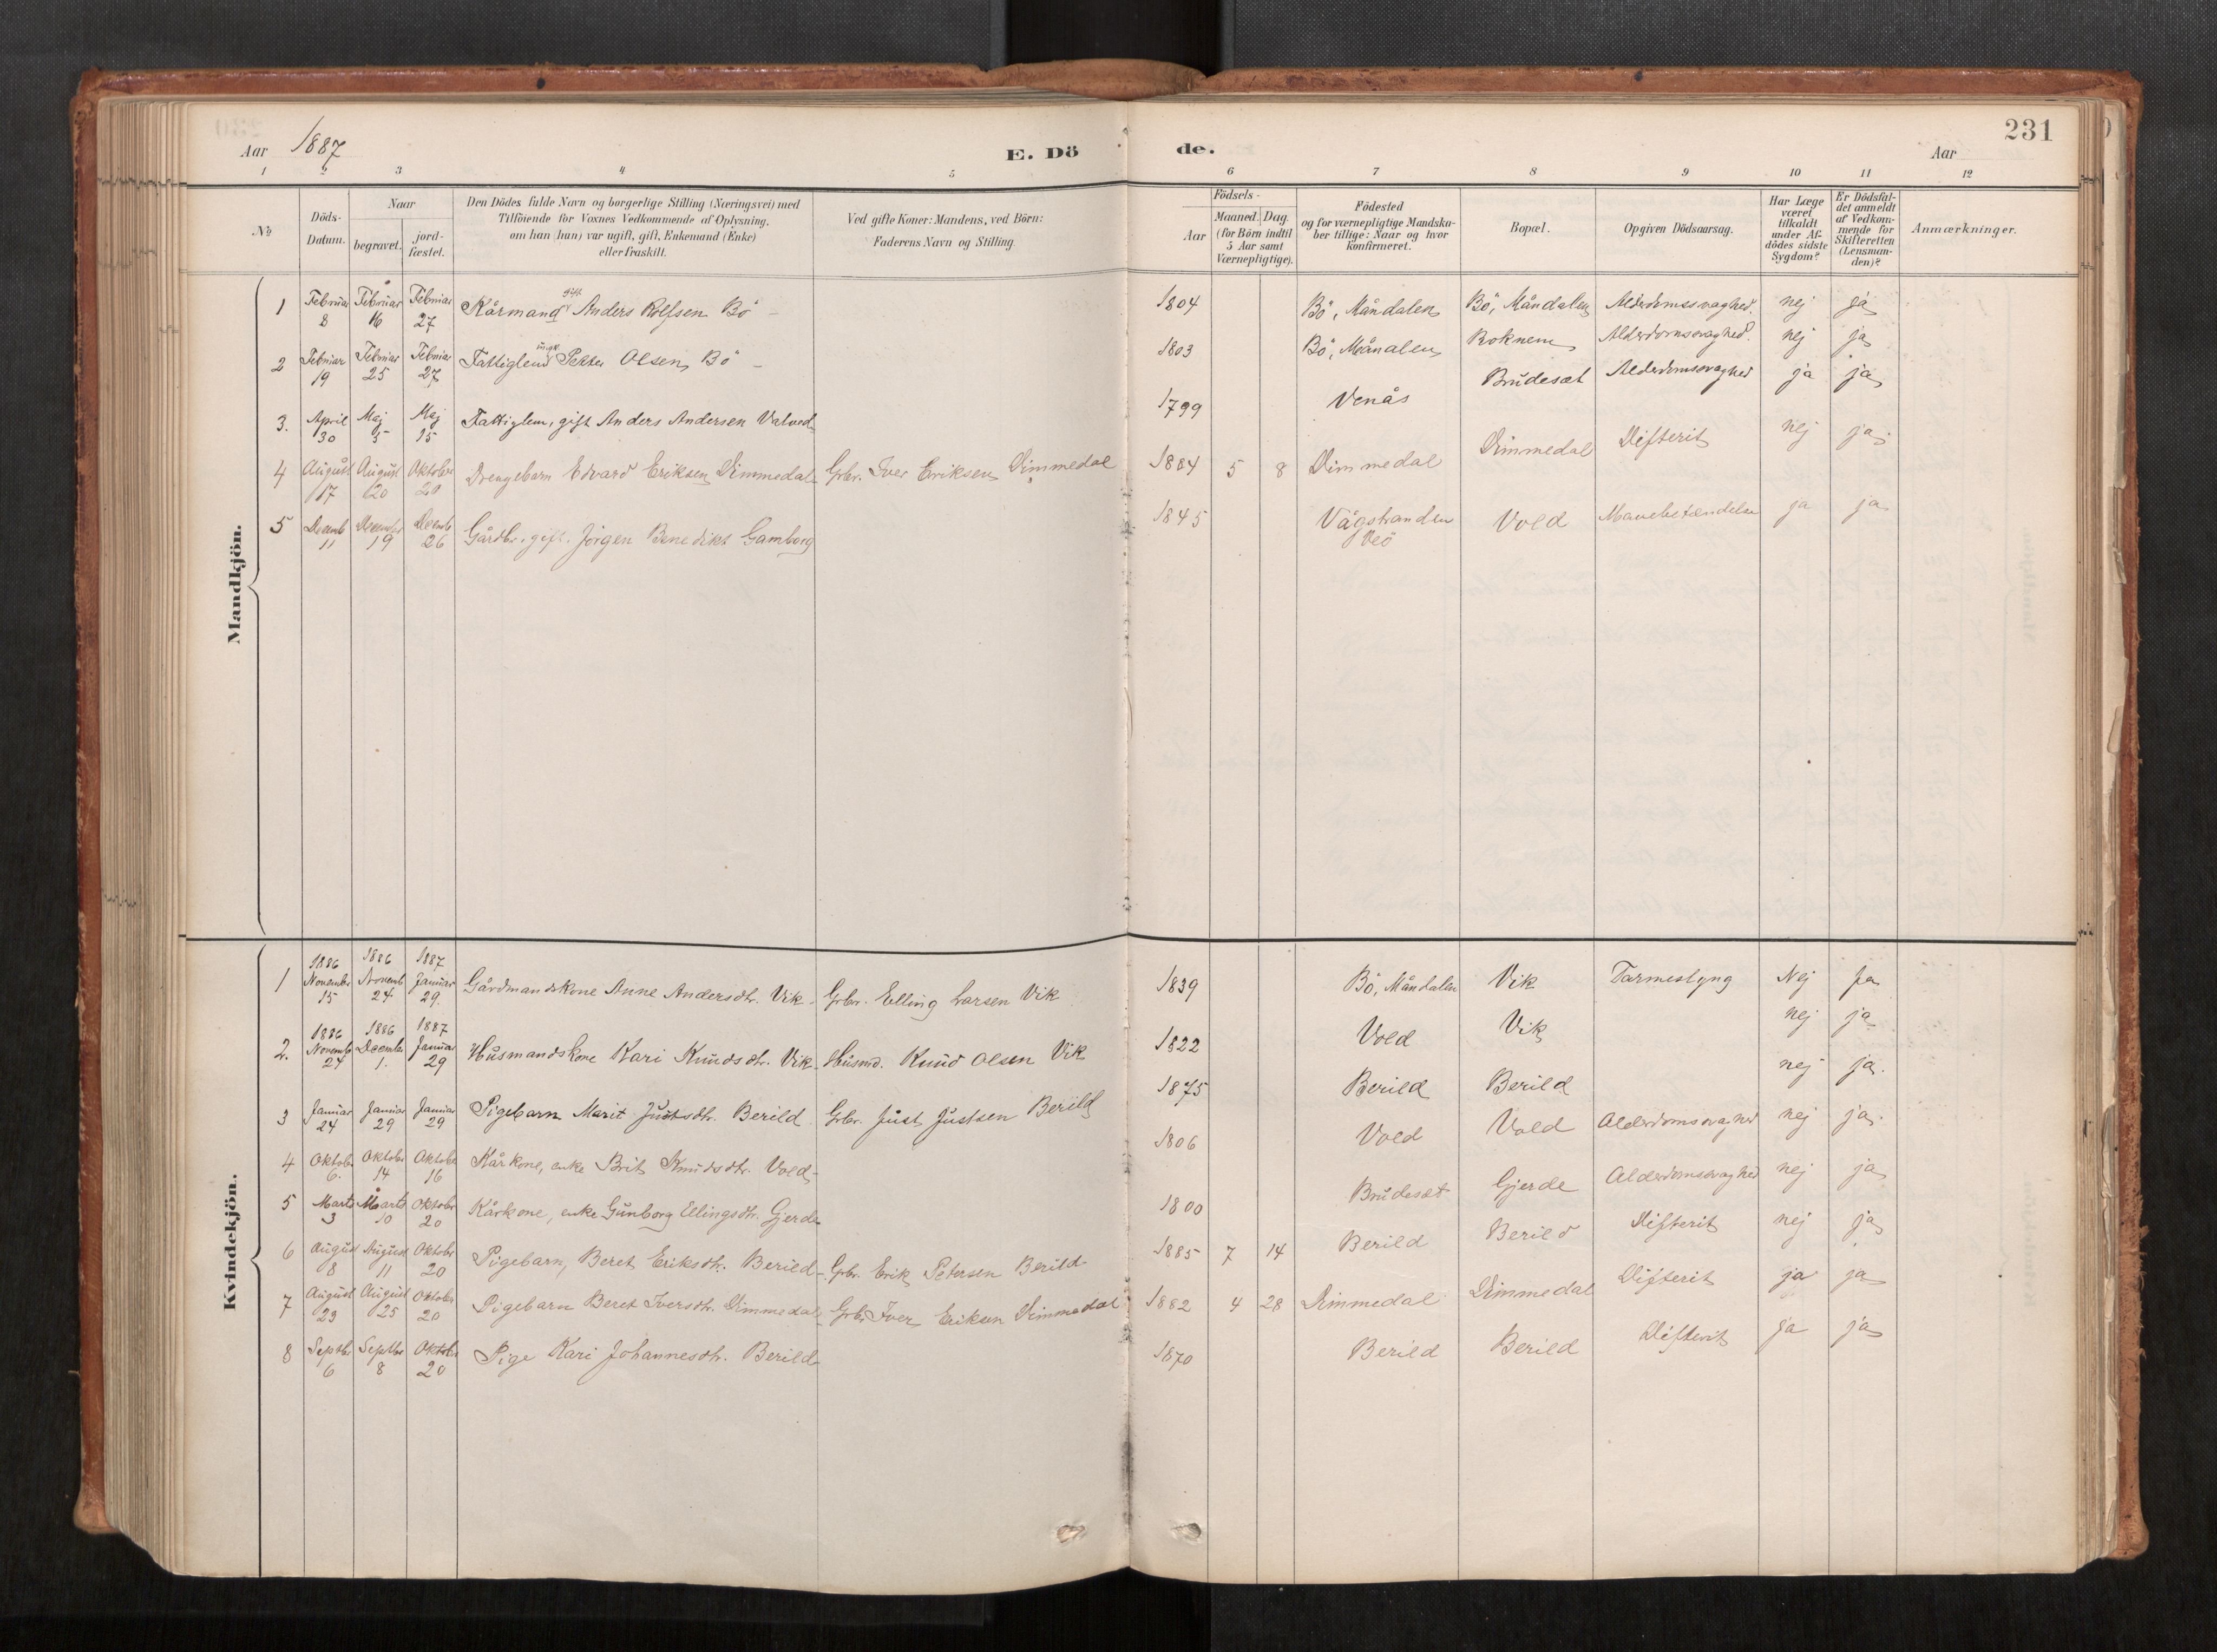 231
Aar 1887
E. Dö
de.
Aar
1 2 3 4 5 6 7 8 9 10 11 12
No
Döds-
Datum.
Naar
begravet.
jord-
fæstet.
Den Dödes fulde Navn og borgerlige Stilling (Næringsvei) med
Tilföiende for Voxnes Vedkommende af Oplysning.
om han (hun) var ugift, gift, Enkemand (Enke)
eller fraskilt.
Ved gifte Koner: Mandens, ved Börn:
Faderens Navn og Stilling
Födsels-
Aar
Maaned. Dag.
(for Börn indtil
5 Aar samt
Værnepligtige).
Födested
og for værnepligtige Mandska-
ber tillige: Naar og hvor
konfirmeret.
Bopæl.
Opgiven Dödsaarsag.
Har Læge
været
tilkaldt
under Af-
dödes sidste
Sygdom?
Er Dödsfal-
det anmeldt
af Vedkom-
mende for
Skifteretten
(Lensman-
den)?
Anmærkninger.
Mandkjön.
1 Februar 8 Februar 16 Februar 27 Kårmand gift Anders Rolfsen Bö 1804 Bö, Måndalen Bö, Måndalen Alderdomssvaghed. nej ja
2 Februar 19 Februar 25 Februar 27 Fattiglem Petter Olsen Bö 1803 Bö, Månalen Roknem Alderdomssvaghed. nej ja
3. April 30 Maj 5 Maj 15 Fattiglem, gift Anders Andersen 1799 Venås Brudesæt Alderdomssvaghed ja ja
4 August 17 August 20 Oktober 20 Drengebarn Edvard Eriksen Dimmedal Grbr. Iver Eriksen Dimmedal 1884 5 8 Dimmedal Dimmedal Difterit nej ja
5 Decemb 11 December 19 Decemb 26 Gårdbr. gift. Jörgen Benedikt Gamborg 1845 Vågstranden Veö Vold Mavebetændelse ja ja
Kvindekjön.
1 1886 November 15 1886 Novemb 24 1887 Januar 29. Gårdmandskone Anne Andersdtr. Vik Grbr. Elling Larsen Vik 1839 Bö, Måndalen Vik Tarmeslyng Nej Ja
2. 1886 Novemb 24 1886 Decembr 1. 1887 Januar 29 Husmandskone Kari Knudsdtr. Vik Husmd. Knud Olsen Vik 1822 Vold Vik nej ja
3 Januar 24 Januar 29 Januar 29 Pigebarn Marit Justsdtr. Berild Grbr. Just Justsen Berild 1875 Berild Berild nej ja.
4 Oktobr 6. Oktobr 14 Oktobr 16 Kårkone, enke Brit Knudsdtr. Vold 1806 Vold Vold Alderdomssvaghed nej ja.
5 Marts 3 Marts 10 Oktobr 20 Kårkone, enke Gunborg Ellingsdtr. Gjerde 1800 Brudesæt Gjerde Alderdomssvaghed nej ja
6 August 8 August 11 Oktobr 20 Pigebarn, Beret Eriksdtr. Berild Grbr. Erik Petersen Berild 1885 7 14 Berild Berild Difterit nej ja
7 August 23 August 25 Oktobr 20 Pigebarn Beret Iversdtr. Dimmedal Grbr. Iver Eriksen Dimmedal 1882 4 28 Dimmedal Dimmedal Difterit ja ja
8 Septbr 6 Septbr 8 Oktobr 20 Pige Kari Johannesdtr. Berild 1870 Berild Berild Difterit ja ja